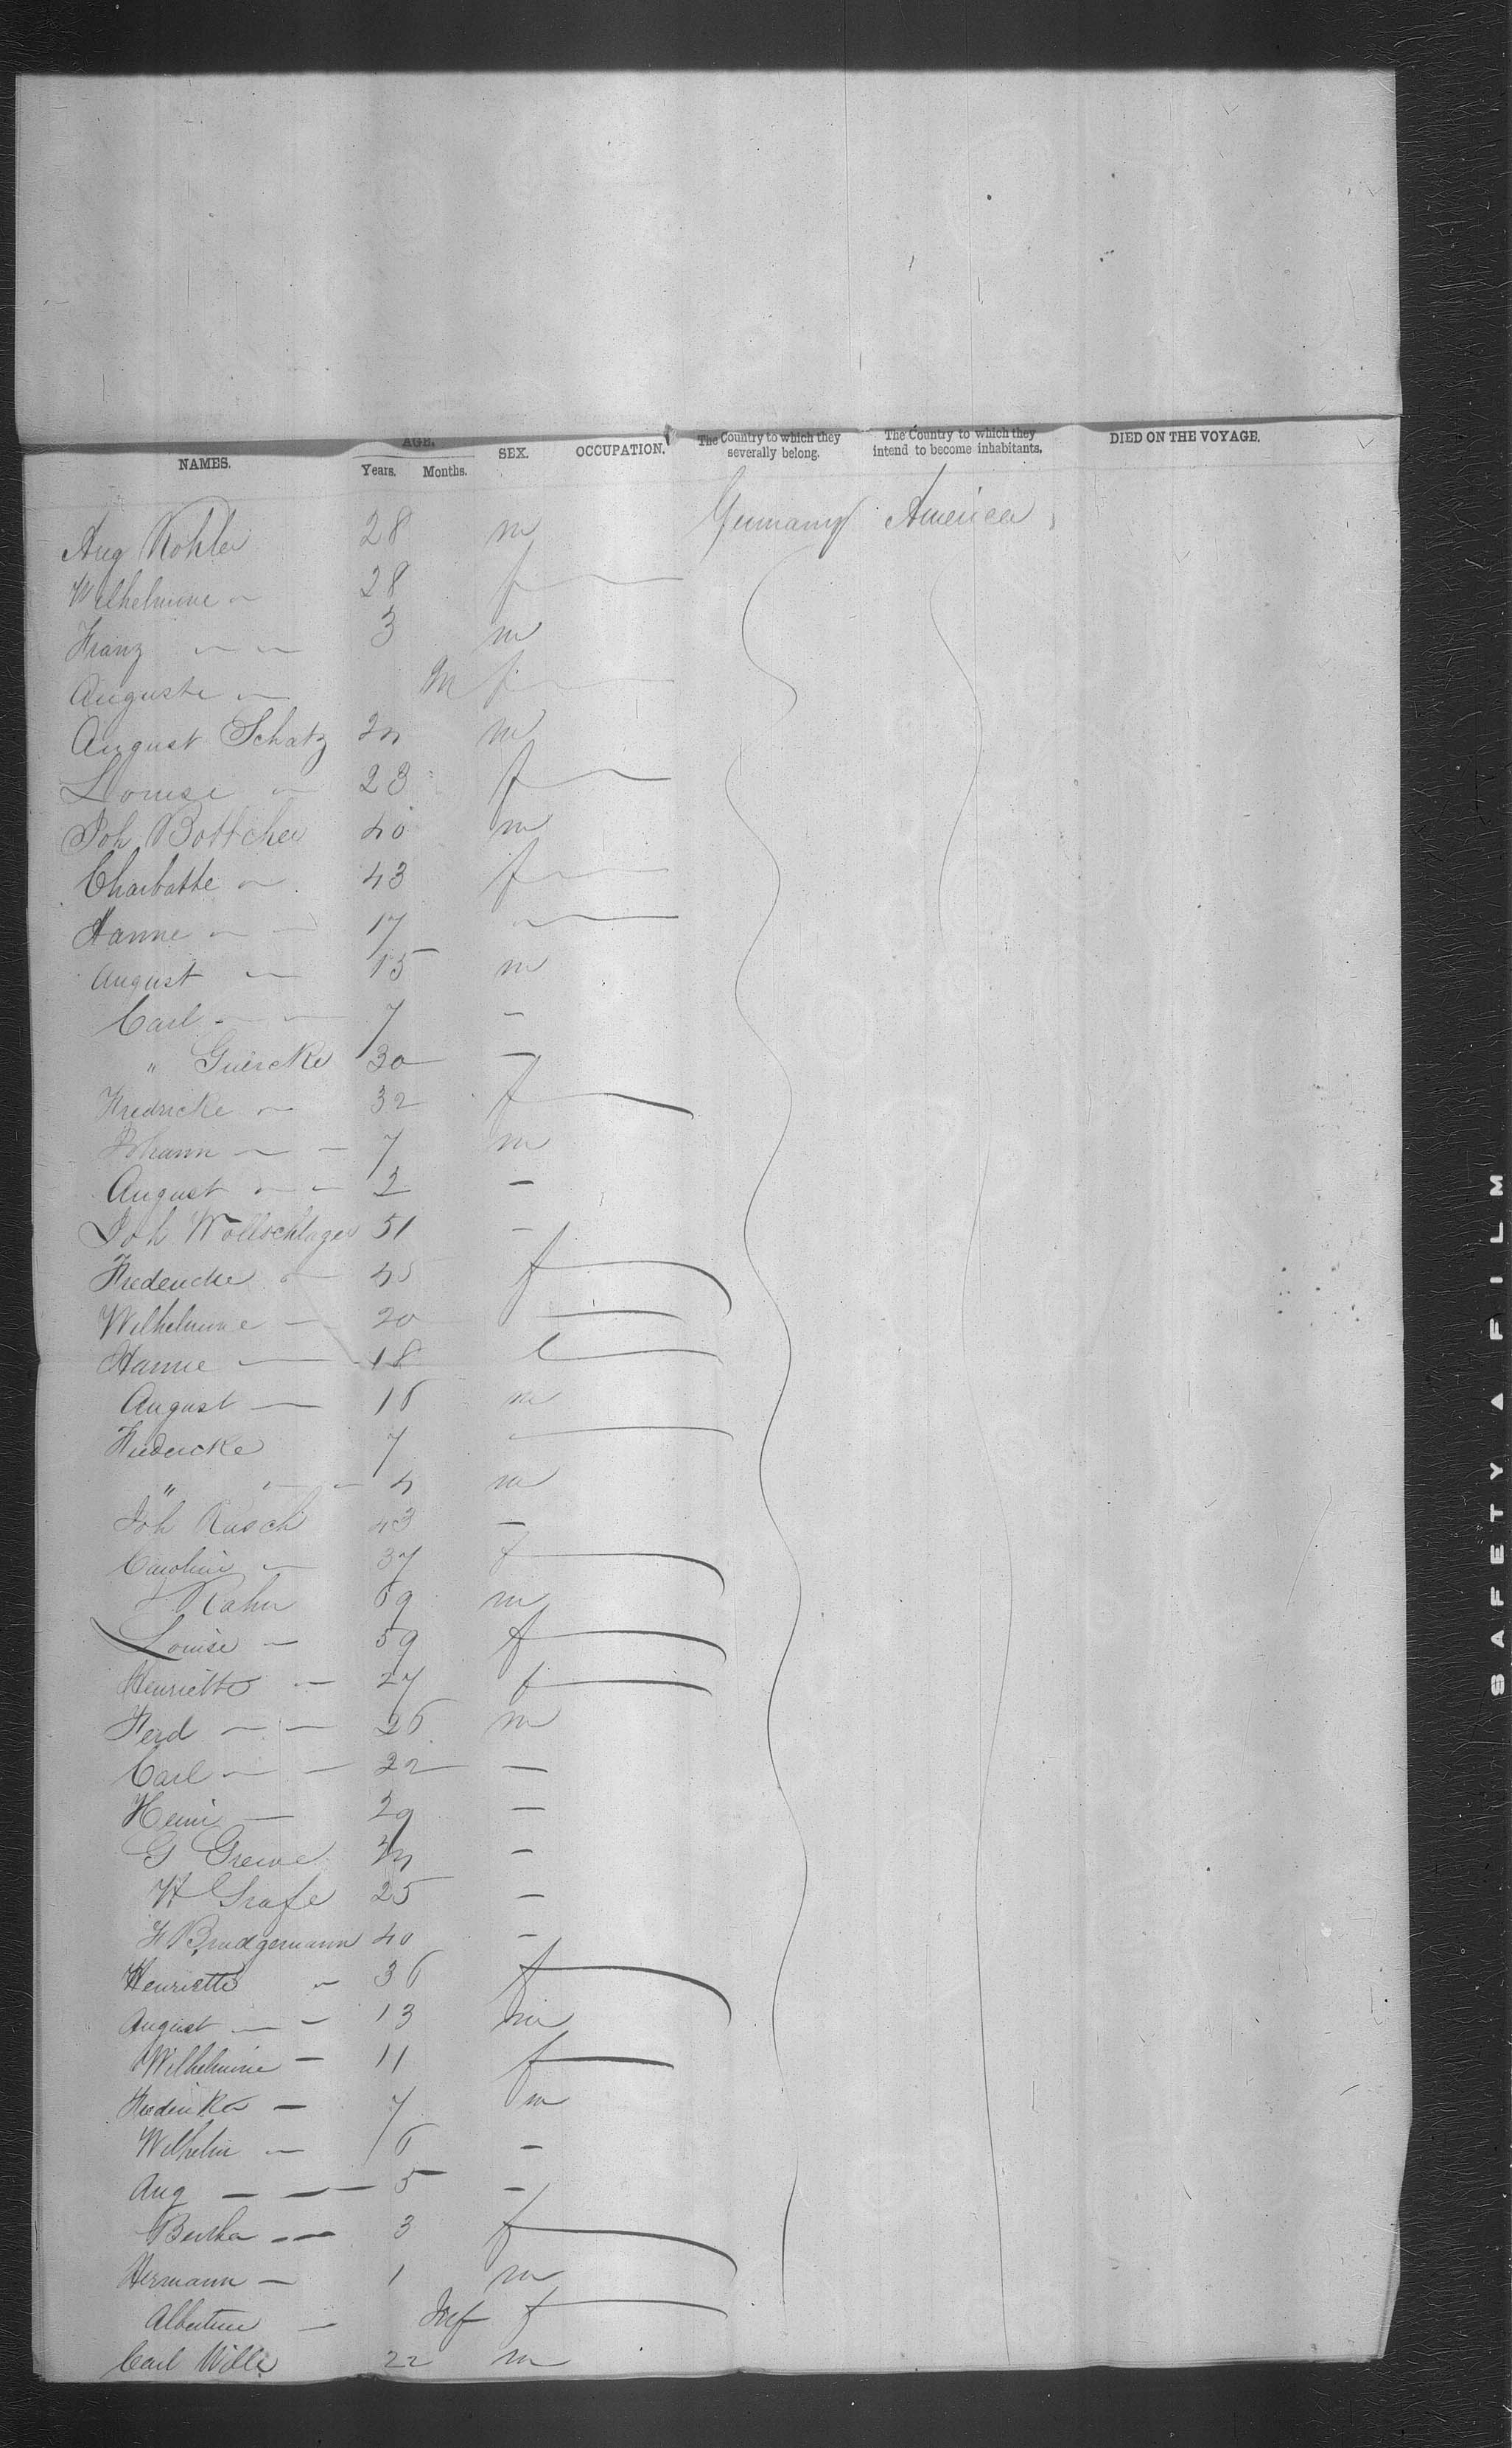 NAMES. AGE. Years. Months. SEX. OCCUPATION. The Country to which they severally belong. The Country to which they intend to become inhabitants. DIED ON THE VOYAGE.
Aug Kohler 28 m Germany America
Wilhelmine " 28 f
Franz " " 3 m
Auguste " f
August Schatz m
Louise " 23 f
Joh Bottcher 40 m
Charlotte " 43 f
Hanne " 17 "
August " 15 m
Carl " 7 -
" Guercke 30 -
Fredricke " 32 f
Johann " 7 m
August " 2 -
Joh Wollschlager 51 -
Fredericke " 45 f
Wilhelmine - 20
Hanne - 18
August - 16 m
Fredericke 7
" " 4 m
Joh Rasch 43 -
Caroline " 37 f
Rahn 69 m
Louise " 59 f
Henriette " 27 f
Ferd - - 26 m
Carl - - 22 -
Heinr - 29 -
G Grewe -
H Grafe 25 -
F Brudgemann 40 -
Henriette " 36 f
August - - 13 m
Wilhelmine - 11 f
Frederike - 7 m
Wilhelm - 6 -
Aug - - - 5 -
Bertha - - 3 f
Hermann - 1 m
Albertine - Inf f
Carl Wille 22 m
SAFETY A FILM